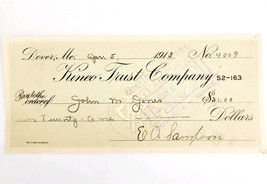 Dover, Me. Apr. 5 1913 No. 4009
Kineo Trust Company 52-163
Pay to the order of John M Jones $21.00
Twenty One Dollars
E A Sampson